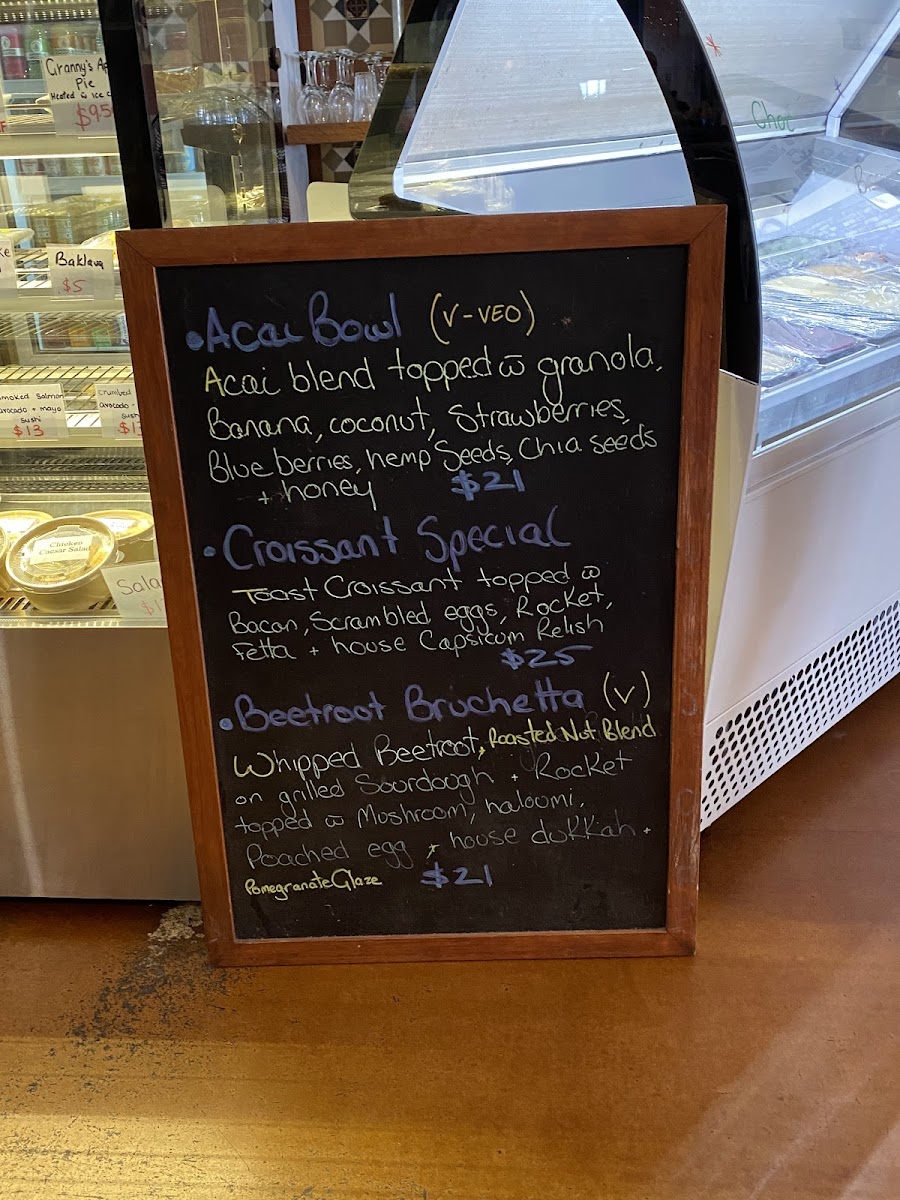 Granny's Ap
Pie
Heated & ice c
$95
Baklava
$5
smoked Salmon
avocado + mayo
sushi
$13
crumbed
avocado +
sushi
$13
Chicken
Caesar Salad
Sala
$1
Choc
•Acai Bowl (V-VEO)
Acai blend topped w̄ granola,
Banana, coconut, Strawberries,
Blueberries, hemp Seeds, Chia seeds
+ honey $21
•Croissant Special
Toast Croissant topped w̄
Bacon, Scrambled eggs, Rocket,
Fetta + house Capsicum Relish
$25
•Beetroot Bruchetta (V)
Whipped Beetroot, Roasted Nut Blend
on grilled Sourdough + Rocket
topped w̄ Mushroom, haloumi,
Poached egg + house dukkah +
Pomegranate Glaze $21